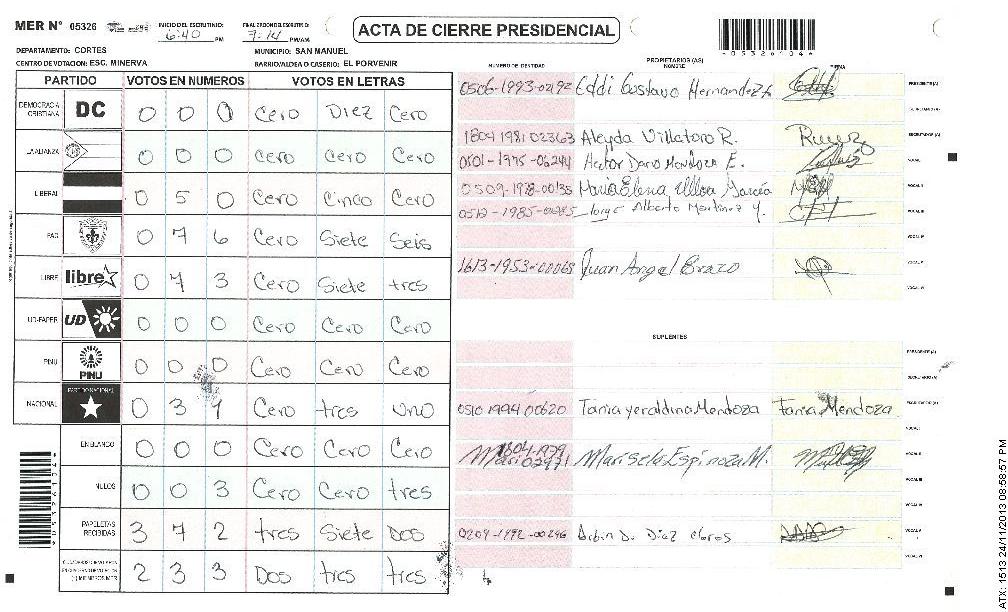 MER N° 05326 INICIO DEL ESCRUTINIO: 6:40 PM FINALIZACION DEL ESCRUTINIO: 7:14 PM/AM
ACTA DE CIERRE PRESIDENCIAL
- 0 5 3 2 6 1 0 4 -
DEPARTAMENTO: CORTES MUNICIPIO: SAN MANUEL
CENTRO DE VOTACION: ESC. MINERVA BARRIO/ALDEA O CASERIO: EL PORVENIR
PARTIDO VOTOS EN NUMEROS VOTOS EN LETRAS
DEMOCRACIA CRISTIANA DC 0 0 0 Cero Diez Cero
LA ALIANZA 0 0 0 Cero Cero Cero
LIBERAL 0 5 0 Cero Cinco Cero
PAC 0 7 6 Cero Siete Seis
LIBRE libre 0 7 3 Cero Siete tres
UD-FAPER UD 0 0 0 Cero Cero Cero
PINU PINU 0 0 0 Cero Cero Cero
NACIONAL PARTIDO NACIONAL 0 3 1 Cero tres Uno
EN BLANCO 0 0 0 Cero Cero Cero
NULOS 0 0 3 Cero Cero tres
PAPELETAS RECIBIDAS 3 7 2 tres Siete Dos
2 3 3 Dos tres tres
NUMERO DE IDENTIDAD PROPIETARIOS (AS) NOMBRE FIRMA
0506-1993-0292 Eddi Gustavo Hernandez PRESIDENTE (A)
SECRETARIO (A)
1804 1981 02363 Aleyda Villatoro R. SECRETARIO (A)
0501-1975-06244 Hector Dario Mendoza E. VOCAL I
0509-1978-00135 Maria Elena Ulloa Garcia VOCAL II
0512-1985-0285 Jorge Alberto Martinez Y. VOCAL III
VOCAL IV
1613-1953-00065 Juan Angel Brazo VOCAL V
VOCAL VI
SUPLENTES
PRESIDENTE (A)
SECRETARIO (A)
0510 1994 00620 Tania yeraldina Mendoza Tania Mendoza ESCRUTADOR (A)
VOCAL I
1804-1979 02971 Marisela Espinoza M. VOCAL II
VOCAL III
VOCAL IV
0209-1992-00296 Arbin D. Diaz Claros VOCAL V
VOCAL VI
ATX: 1513 24/11/2013 08:58:57 PM